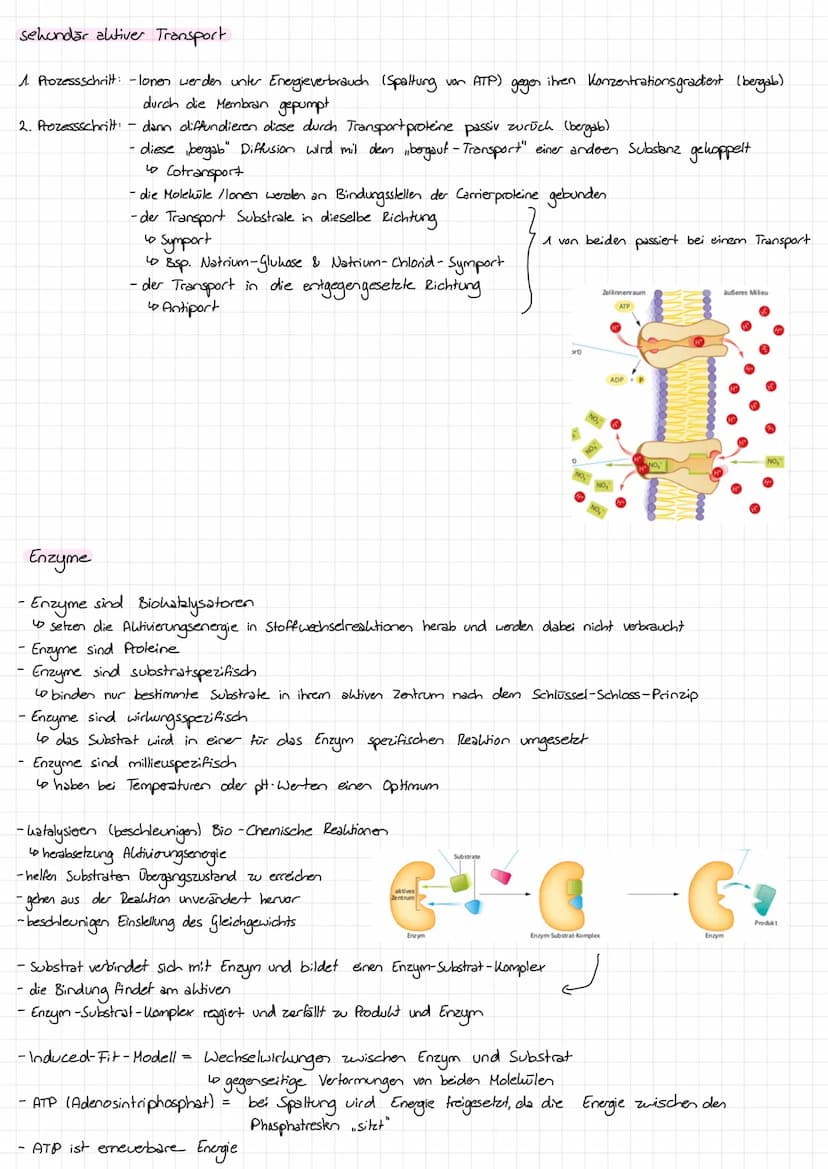 sekundär aktiver Transport
1. Prozessschritt: - Ionen werden unter Energieverbrauch (Spaltung von ATP) gegen ihren Konzentrationsgradient (bergab)
durch die Membran gepumpt
2. Prozessschritt: - dann diffundieren diese durch Transportproteine passiv zurück (bergab)
- diese „bergab" Diffusion wird mit dem „bergauf - Transport" einer anderen Substanz gekoppelt
↳ Cotransport
- die Moleküle / Ionen werden an Bindungsstellen der Carrierproteine gebunden
- der Transport Substrate in dieselbe Richtung
↳ Symport
1 von beiden passiert bei einem Transport
↳ Bsp. Natrium-Glukose & Natrium-Chlorid-Symport
- der Transport in die entgegengesetzte Richtung
↳ Antiport
Zellinnenraum
äußeres Milieu
ATP
H⁺
ort)
ADP + P
NO₃⁻
NO₃⁻
NO₃⁻
NO₃⁻
NO₃⁻
NO₃⁻
NO₃⁻
Enzyme
- Enzyme sind Biokatalysatoren
↳ setzen die Aktivierungsenergie in Stoffwechselreaktionen herab und werden dabei nicht verbraucht
- Enzyme sind Proteine
- Enzyme sind substratspezifisch
↳ binden nur bestimmte Substrate in ihrem aktiven Zentrum nach dem Schlüssel-Schloss-Prinzip
- Enzyme sind wirkungsspezifisch
↳ das Substrat wird in einer für das Enzym spezifischen Reaktion umgesetzt
- Enzyme sind millieuspezifisch
↳ haben bei Temperaturen oder pH-Werten einen Optimum
- katalysieren (beschleunigen) Bio-Chemische Reaktionen
↳ herabsetzung Aktivierungsenergie
- helfen Substraten Übergangszustand zu erreichen
- gehen aus der Reaktion unverändert hervor
- beschleunigen Einstellung des Gleichgewichts
Substrate
aktives
Zentrum
Enzym
Enzym-Substrat-Komplex
Enzym
Produkt
- Substrat verbindet sich mit Enzym und bildet einen Enzym-Substrat-Komplex
- die Bindung findet am aktiven
- Enzym-Substrat-Komplex reagiert und zerfällt zu Produkt und Enzym
- Induced-Fit-Modell = Wechselwirkungen zwischen Enzym und Substrat
↳ gegenseitige Verformungen von beiden Molekülen
- ATP (Adenosintriphosphat) = bei Spaltung wird Energie freigesetzt, da die Energie zwischen den
Phosphatresten „sitzt"
- ATP ist erneuerbare Energie